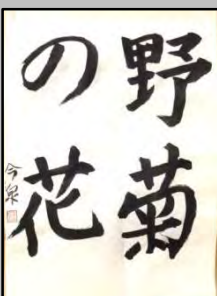 野菊
の花
今泉